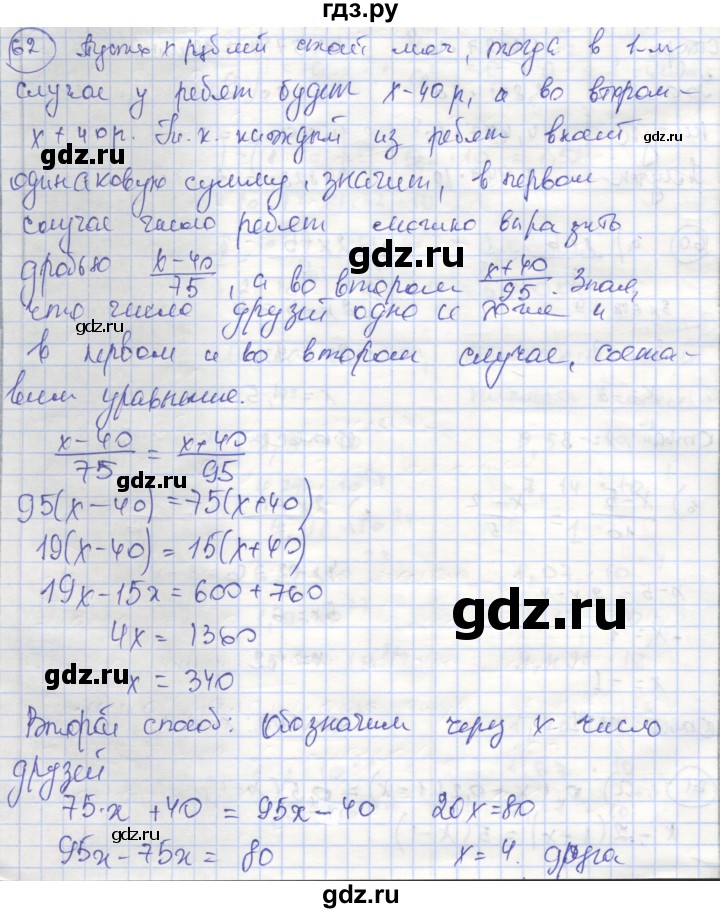 гдз.ру
62 Пусть x рублей стоит мяч, тогда в 1-м
случае у ребят будет x-40 р, а во втором -
x+40р. Т.к. каждый из ребят вносит
gdz.ru
gdz.ru
одинаковую сумму, значит, в первом
случае число ребят можно выразить
gdz.ru
дробью x-40/75, а во втором x+40/95. Зная,
что число друзей одно и тоже и
gdz.ru
в первом и во втором случае, соста-
вим уравнение.
x-40/75 = x+40/95
gdz.ru
95(x-40)=75(x+40)
19(x-40)=15(x+40)
19x-15x=600+760
gdz.ru
4x=1360
gdz.ru
x=340
Второй способ: Обозначим через x число
друзей
75·x+40=95x-40 20x=80
gdz.ru
95x-75x=80 x=4. друга
gdz.ru